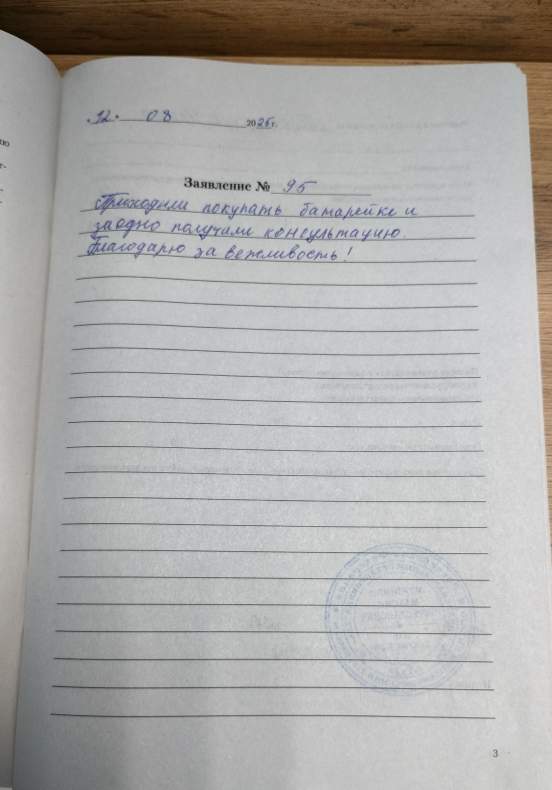 «12» 08 2026 г.
Заявление № 95
Приходили покупать батарейке и
заодно получили консультацию.
Благодарю за вежливость!
3